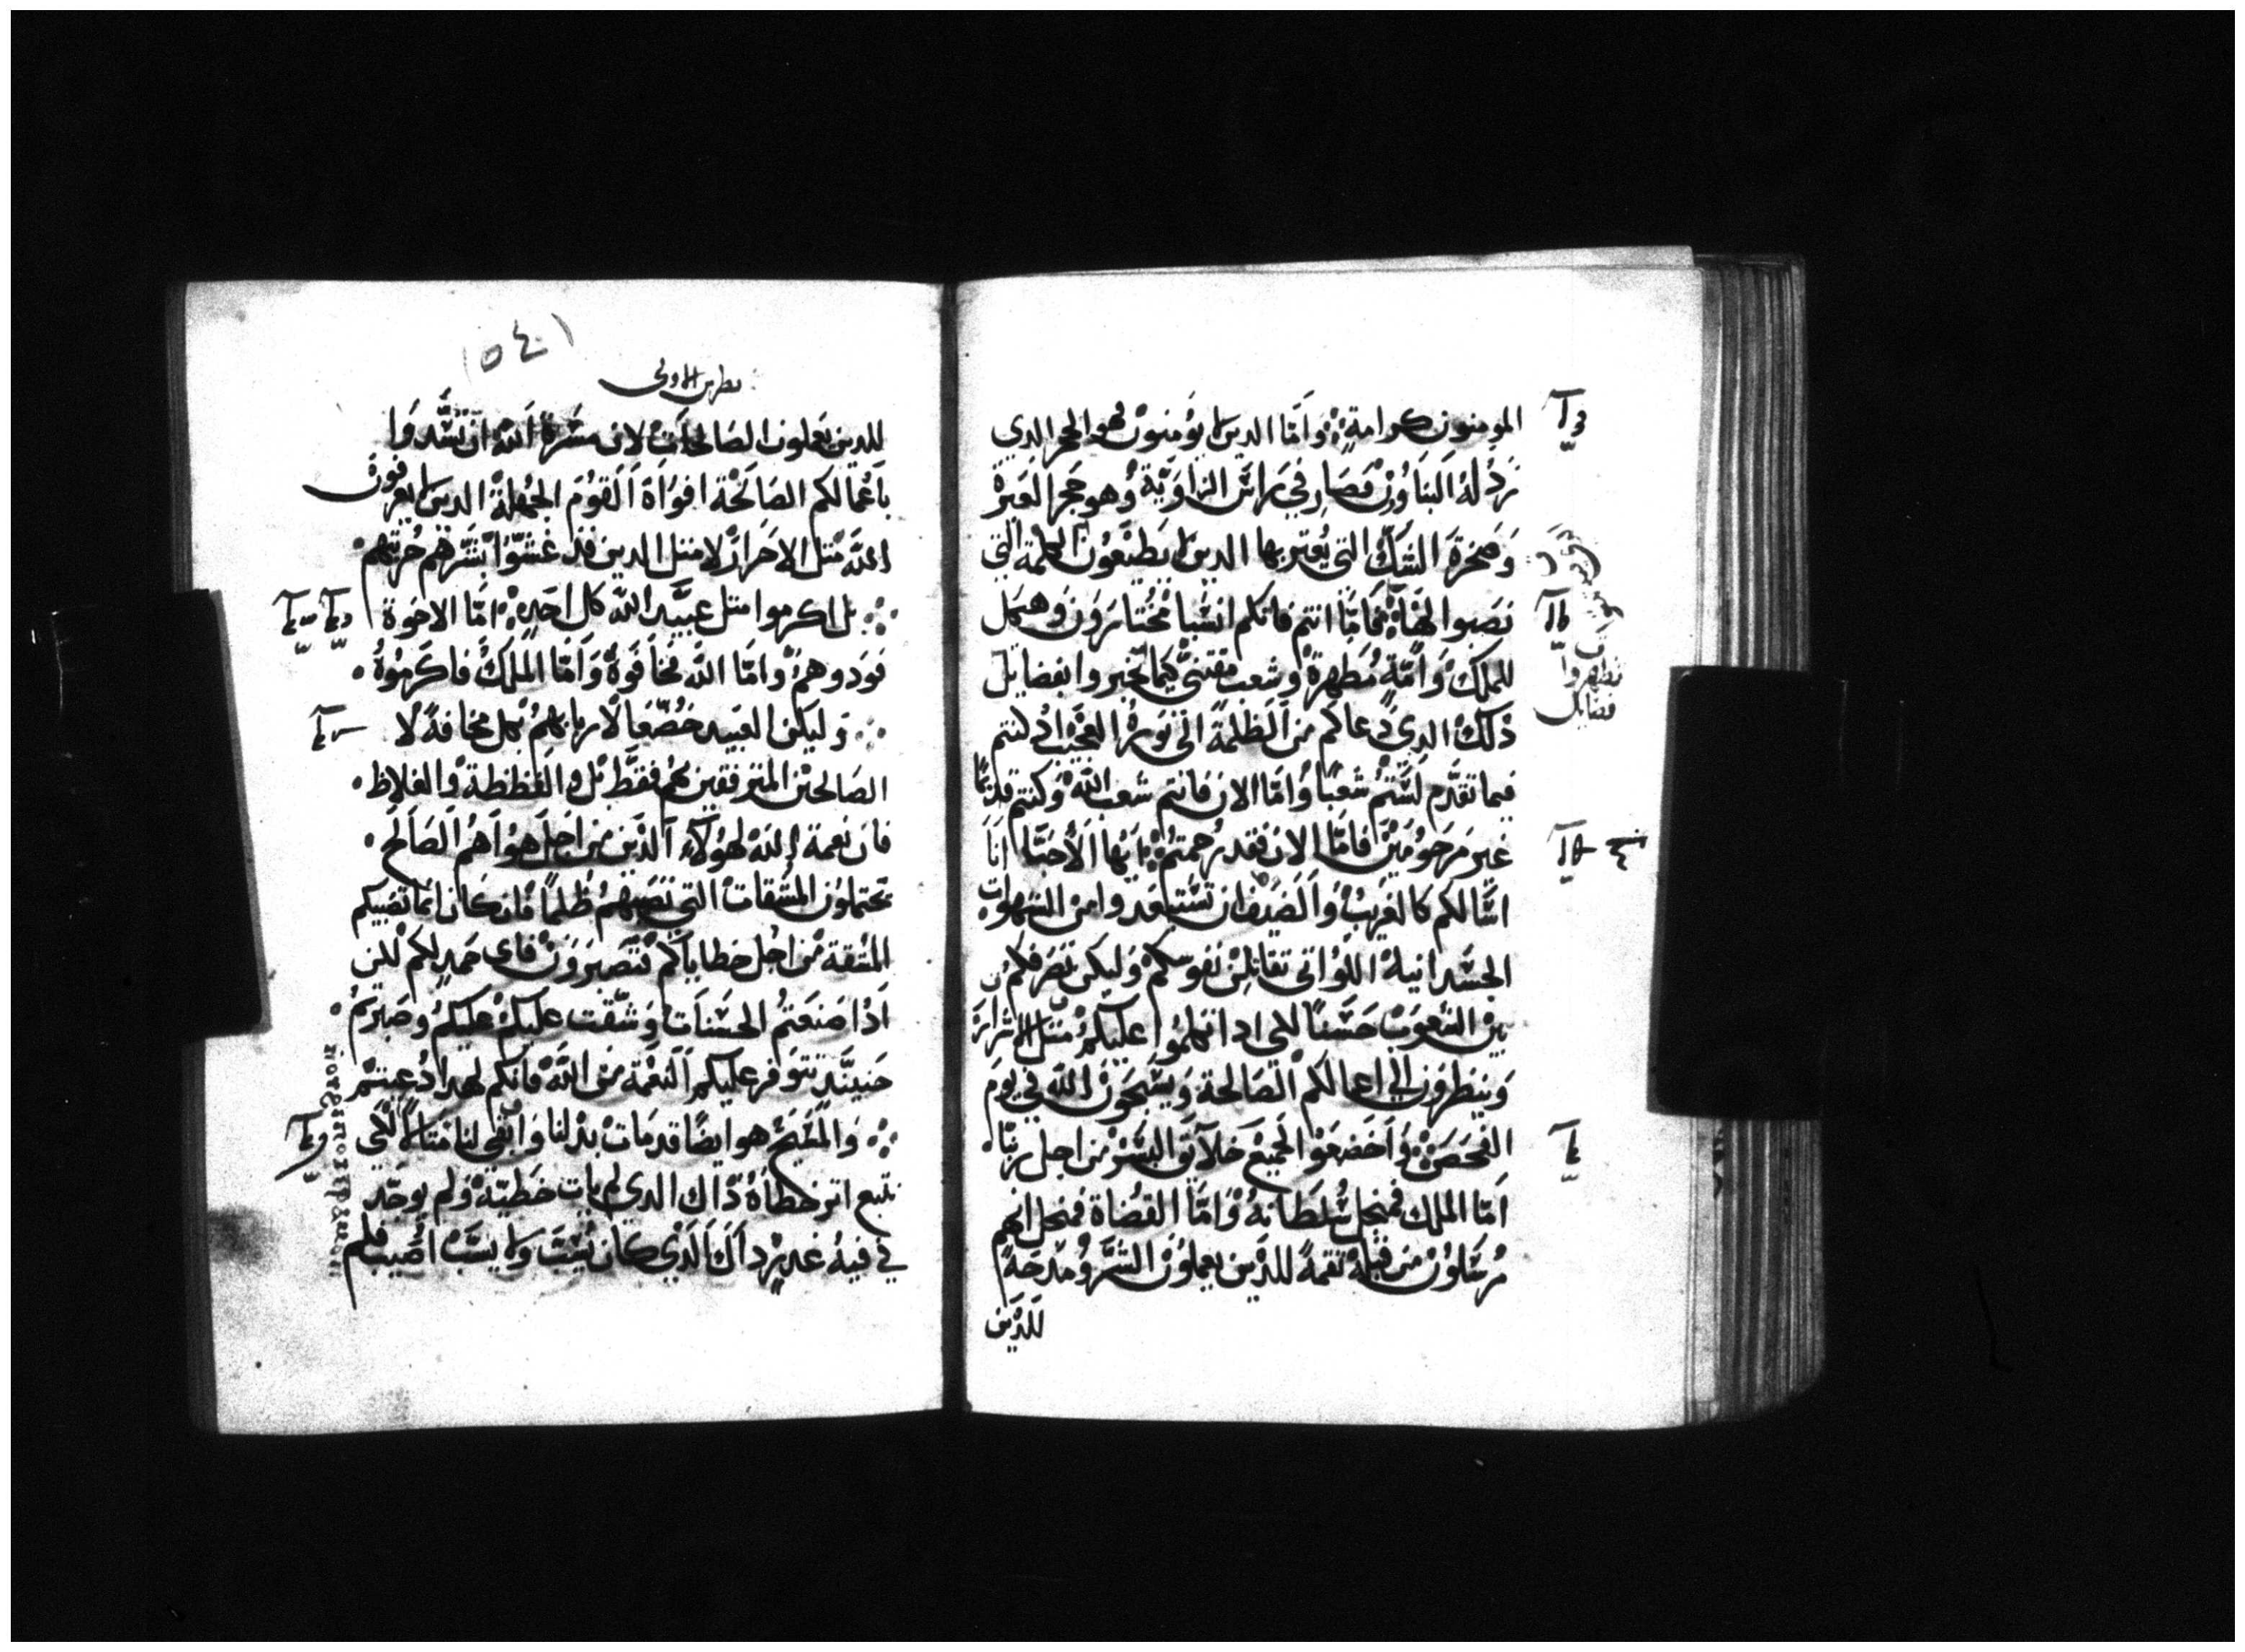 المومنون كرامة وَاَمّا الدين لا يُومنون فهو الحجر الدي
نَردُلهُ اَلبَناوُن فصَار في راَس الزاوَيَة وهو حَجر العَترة
وَصَخرَة الشكّ التي يُعتر بها الدين لا يَطيعُون الكلمة التي
نصَبوا لهَا فَامَّا انتم فانكم انسَبا مُختارَون وَهيكل
للملكْ وَاُمّةٍ مُطهرة وشعب مقتنيّ كيما تخبروا بفضايل
دْلكْ الدي دَعاكم من اَلظلمة الي نوره العجَيب اد كنتم
فيما تقدَّم لستم شعبًا وَامّا الان فانتم شعب الله وكنتم قديمًا
غير مَرحَومَين فامّا الان فقد رُحمتمْ يا ايها الاحبَّا انا
اسَّالكم كالغريبْ وَاَلضيف ان تَستبعَدوا من الشهوات
الجسَدانية اللوُاتي تقاتلن نفوسكمْ وَليكن تصَرفكم
بين الشعوب حَسَنًا لكي ادا تكلموا عليكم مثل الاشرار
وَينظرون الي اعمالكم الصَالحة وَيسَبحَون الله في يومَ
الفحَصَ وَاَخضعَوا لجميعَ خلآيق البَشر من اجل ربنا
اَمّا الملك فمنَجل سُلطَانه وَامّا القضاة فمنجل انهم
مُرسَلون من قبله نقمةً للدَين يعملون الشرّ ومَدحَةً
للدَين
١٥٤
بطرس الاولي
للدين يعملون الصَالحاَتْ لان مسَرة اَلله ان تسَّدوا
باَعمالكم الصَالحَة افوَاَهَ اَلقوُمَ الجُهلةْ الدين لا يعرفون
الله مَتل الاحَرار لا متل الدين قد غشَوا بشرهم حُريتهم
بل اكرموا متل عبيَّد الله كل احَدٍ امّا الاخوة
فودوهمْ وامّا الله فخاَفوهُ وَاَمّا الملكْ فاكرَموُهُ
وَليكن العبيد خضّعا لاربابهم بكل مخافة لا
الصَالحَين المترفقين بهم فقط بل والفظظة والغلاظ
فان نعمة الله لهوُلآء اَلذَين من اجل هوَاهُم الصَالح
يحتملون المشقات التي تصَيبهمُ ظلمًا فان كان انما تصَيبكم
المشقة من اجْل خطاياكم فتصبَروَن فاي حَمدٍ لكم لكن
اَدْا صَنعَتمُ الحسَناَت وَشقت عليكمْ عليكم وصَبرتمُ
حَينيَّدٍ تتوفر عليكم النعمْة من الله فانكم لهدا دُعيتم
وَالمَسَيحَ هو ايضًا قد مات بدلنا وَابقي لنا متالًا لكي
نتبع اتر خطاهُ دْاك الدي لم يات خطيّة ولم يوجد
في فيهُ غدر داَك اَلدي كان يُسَبَّ وَلا يسَبّ اُصَيب فلم